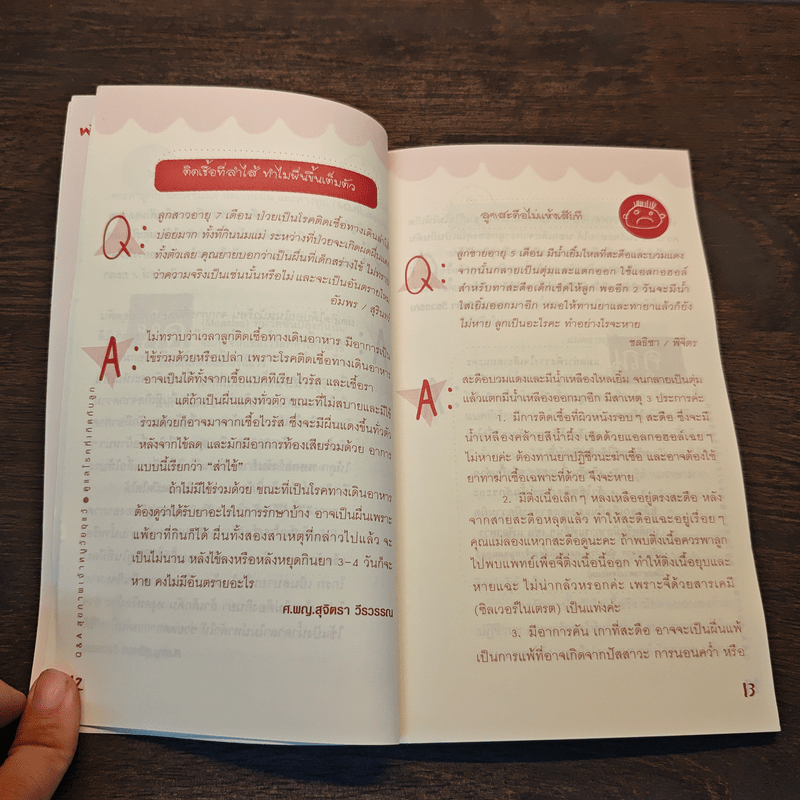 ติดเชื้อที่ลำไส้ ทำไมผื่นขึ้นเต็มตัว
Q:
ลูกสาวอายุ 7 เดือน ป่วยเป็นโรคติดเชื้อทางเดินลำไส้
บ่อยมาก ทั้งที่กินนมแม่ ระหว่างที่ป่วยจะเกิดผดผื่นแดง
ทั้งตัวเลย คุณยายบอกว่าเป็นผื่นที่เด็กสร่างไข้ ไม่ทราบ
ว่าความจริงเป็นเช่นนั้นหรือไม่ และจะเป็นอันตรายไหม
อัมพร / สุรินทร์
A:
ไม่ทราบว่าเวลาลูกติดเชื้อทางเดินอาหาร มีอาการเป็น
ไข้ร่วมด้วยหรือเปล่า เพราะโรคติดเชื้อทางเดินอาหาร
อาจเป็นได้ทั้งจากเชื้อแบคทีเรีย ไวรัส และเชื้อรา
แต่ถ้าเป็นผื่นแดงทั่วตัว ขณะที่ไม่สบายและมีไข้
ร่วมด้วยก็อาจมาจากเชื้อไวรัส ซึ่งจะมีผื่นแดงขึ้นทั่วตัว
หลังจากไข้ลด และมักมีอาการท้องเสียร่วมด้วย อาการ
แบบนี้เรียกว่า "ส่าไข้"
ถ้าไม่มีไข้ร่วมด้วย ขณะที่เป็นโรคทางเดินอาหาร
ต้องดูว่าได้รับยาอะไรในการรักษาบ้าง อาจเป็นผื่นเพราะ
แพ้ยาที่กินก็ได้ ผื่นทั้งสองสาเหตุที่กล่าวไปแล้ว จะ
เป็นไม่นาน หลังไข้ลงหรือหลังหยุดกินยา 3-4 วันก็จะ
หาย คงไม่มีอันตรายอะไร
ศ.พญ.สุจิตรา วีรวรรณ
Q&A สุขภาพเจ้าหนูวัยซุกซน ● ดูแลโรคที่เกิดกับลูก
ลูกสะดือไม่แห้งเสียที
Q:
ลูกชายอายุ 5 เดือน มีน้ำเยิ้มไหลที่สะดือและบวมแดง
จากนั้นกลายเป็นตุ่มและแตกออก ใช้แอลกอฮอล์
สำหรับทาสะดือเด็กเช็ดให้ลูก พออีก 2 วันจะมีน้ำ
ใสเยิ้มออกมาอีก หมอให้ทานยาและทายาแล้วก็ยัง
ไม่หาย ลูกเป็นอะไรคะ ทำอย่างไรจะหาย
ชลธิชา / พิจิตร
A:
สะดือบวมแดงและมีน้ำเหลืองไหลเยิ้ม จนกลายเป็นตุ่ม
แล้วแตกมีน้ำเหลืองออกมาอีก มีสาเหตุ 3 ประการค่ะ
1. มีการติดเชื้อที่ผิวหนังรอบๆ สะดือ ซึ่งจะมี
น้ำเหลืองคล้ายสีน้ำผึ้ง เช็ดด้วยแอลกอฮอล์เฉยๆ
ไม่หายค่ะ ต้องทานยาปฏิชีวนะฆ่าเชื้อ และอาจต้องใช้
ยาทาฆ่าเชื้อเฉพาะที่ด้วย จึงจะหาย
2. มีติ่งเนื้อเล็กๆ หลงเหลืออยู่ตรงสะดือ หลัง
จากสายสะดือหลุดแล้ว ทำให้สะดือแฉะอยู่เรื่อยๆ
คุณแม่ลองแหวกสะดือดูนะคะ ถ้าพบติ่งเนื้อควรพาลูก
ไปพบแพทย์เพื่อจี้ติ่งเนื้อนี้ออก ทำให้ติ่งเนื้อยุบและ
หายแฉะ ไม่น่ากลัวหรอกค่ะ เพราะจี้ด้วยสารเคมี
(ซิลเวอร์ไนเตรต) เป็นแท่งค่ะ
3. มีอาการคัน เกาที่สะดือ อาจจะเป็นผื่นแพ้
เป็นการแพ้ที่อาจเกิดจากปัสสาวะ การนอนคว่ำ หรือ
13